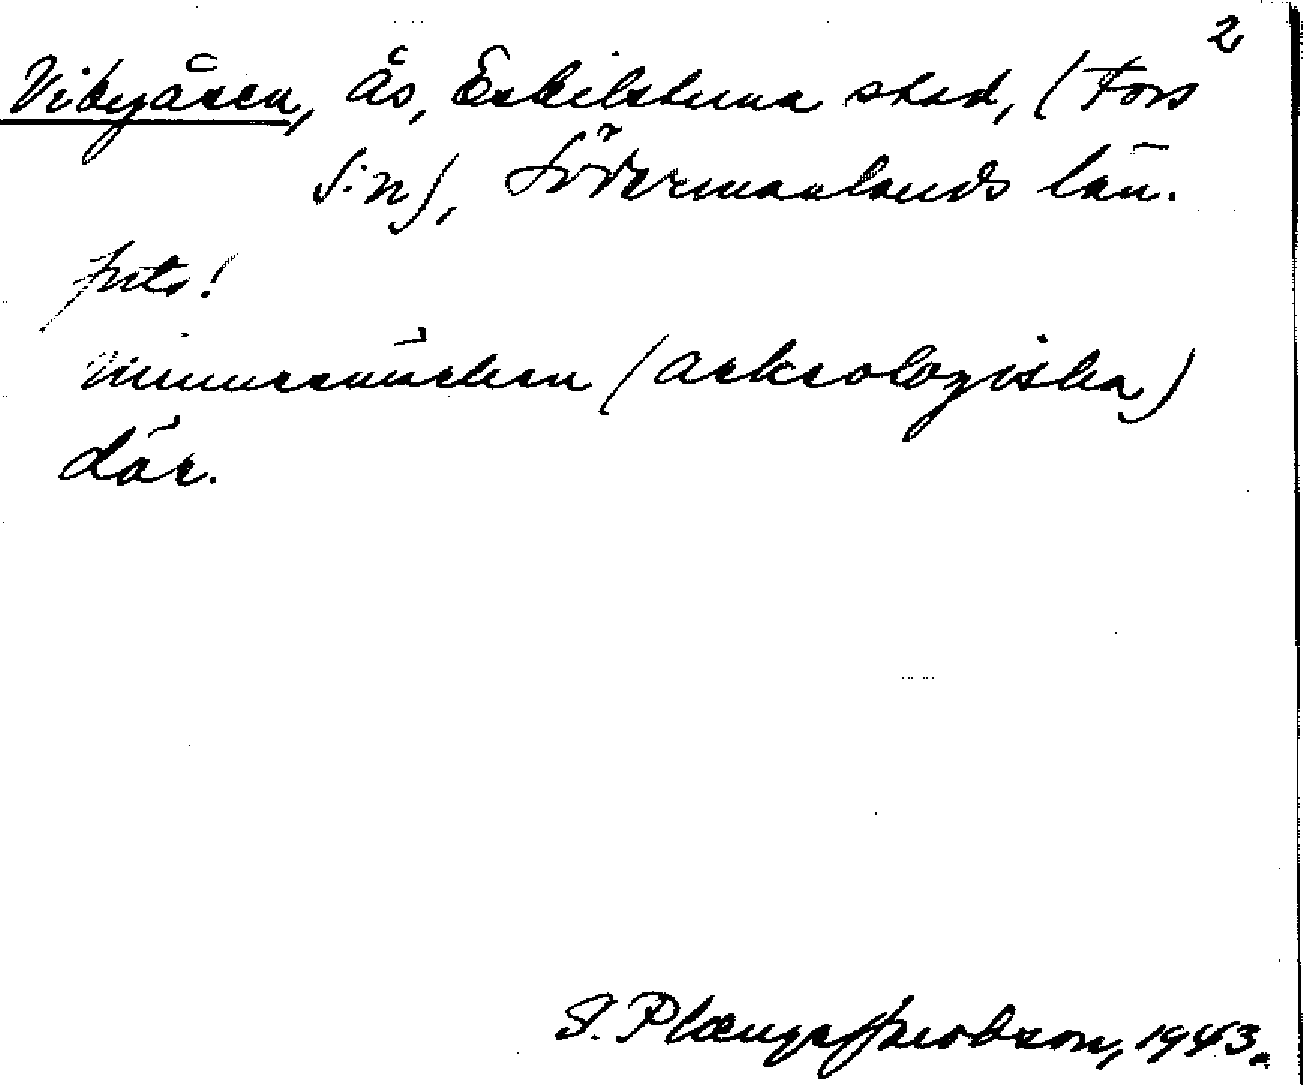 2
Vibyåsen, ås, Eskilstuna stad, (Fors
s:n), Södermanlands län.
foto!
Minnesmärken (arkeologiska)
där.
S. Plænge Jacobson, 1943.